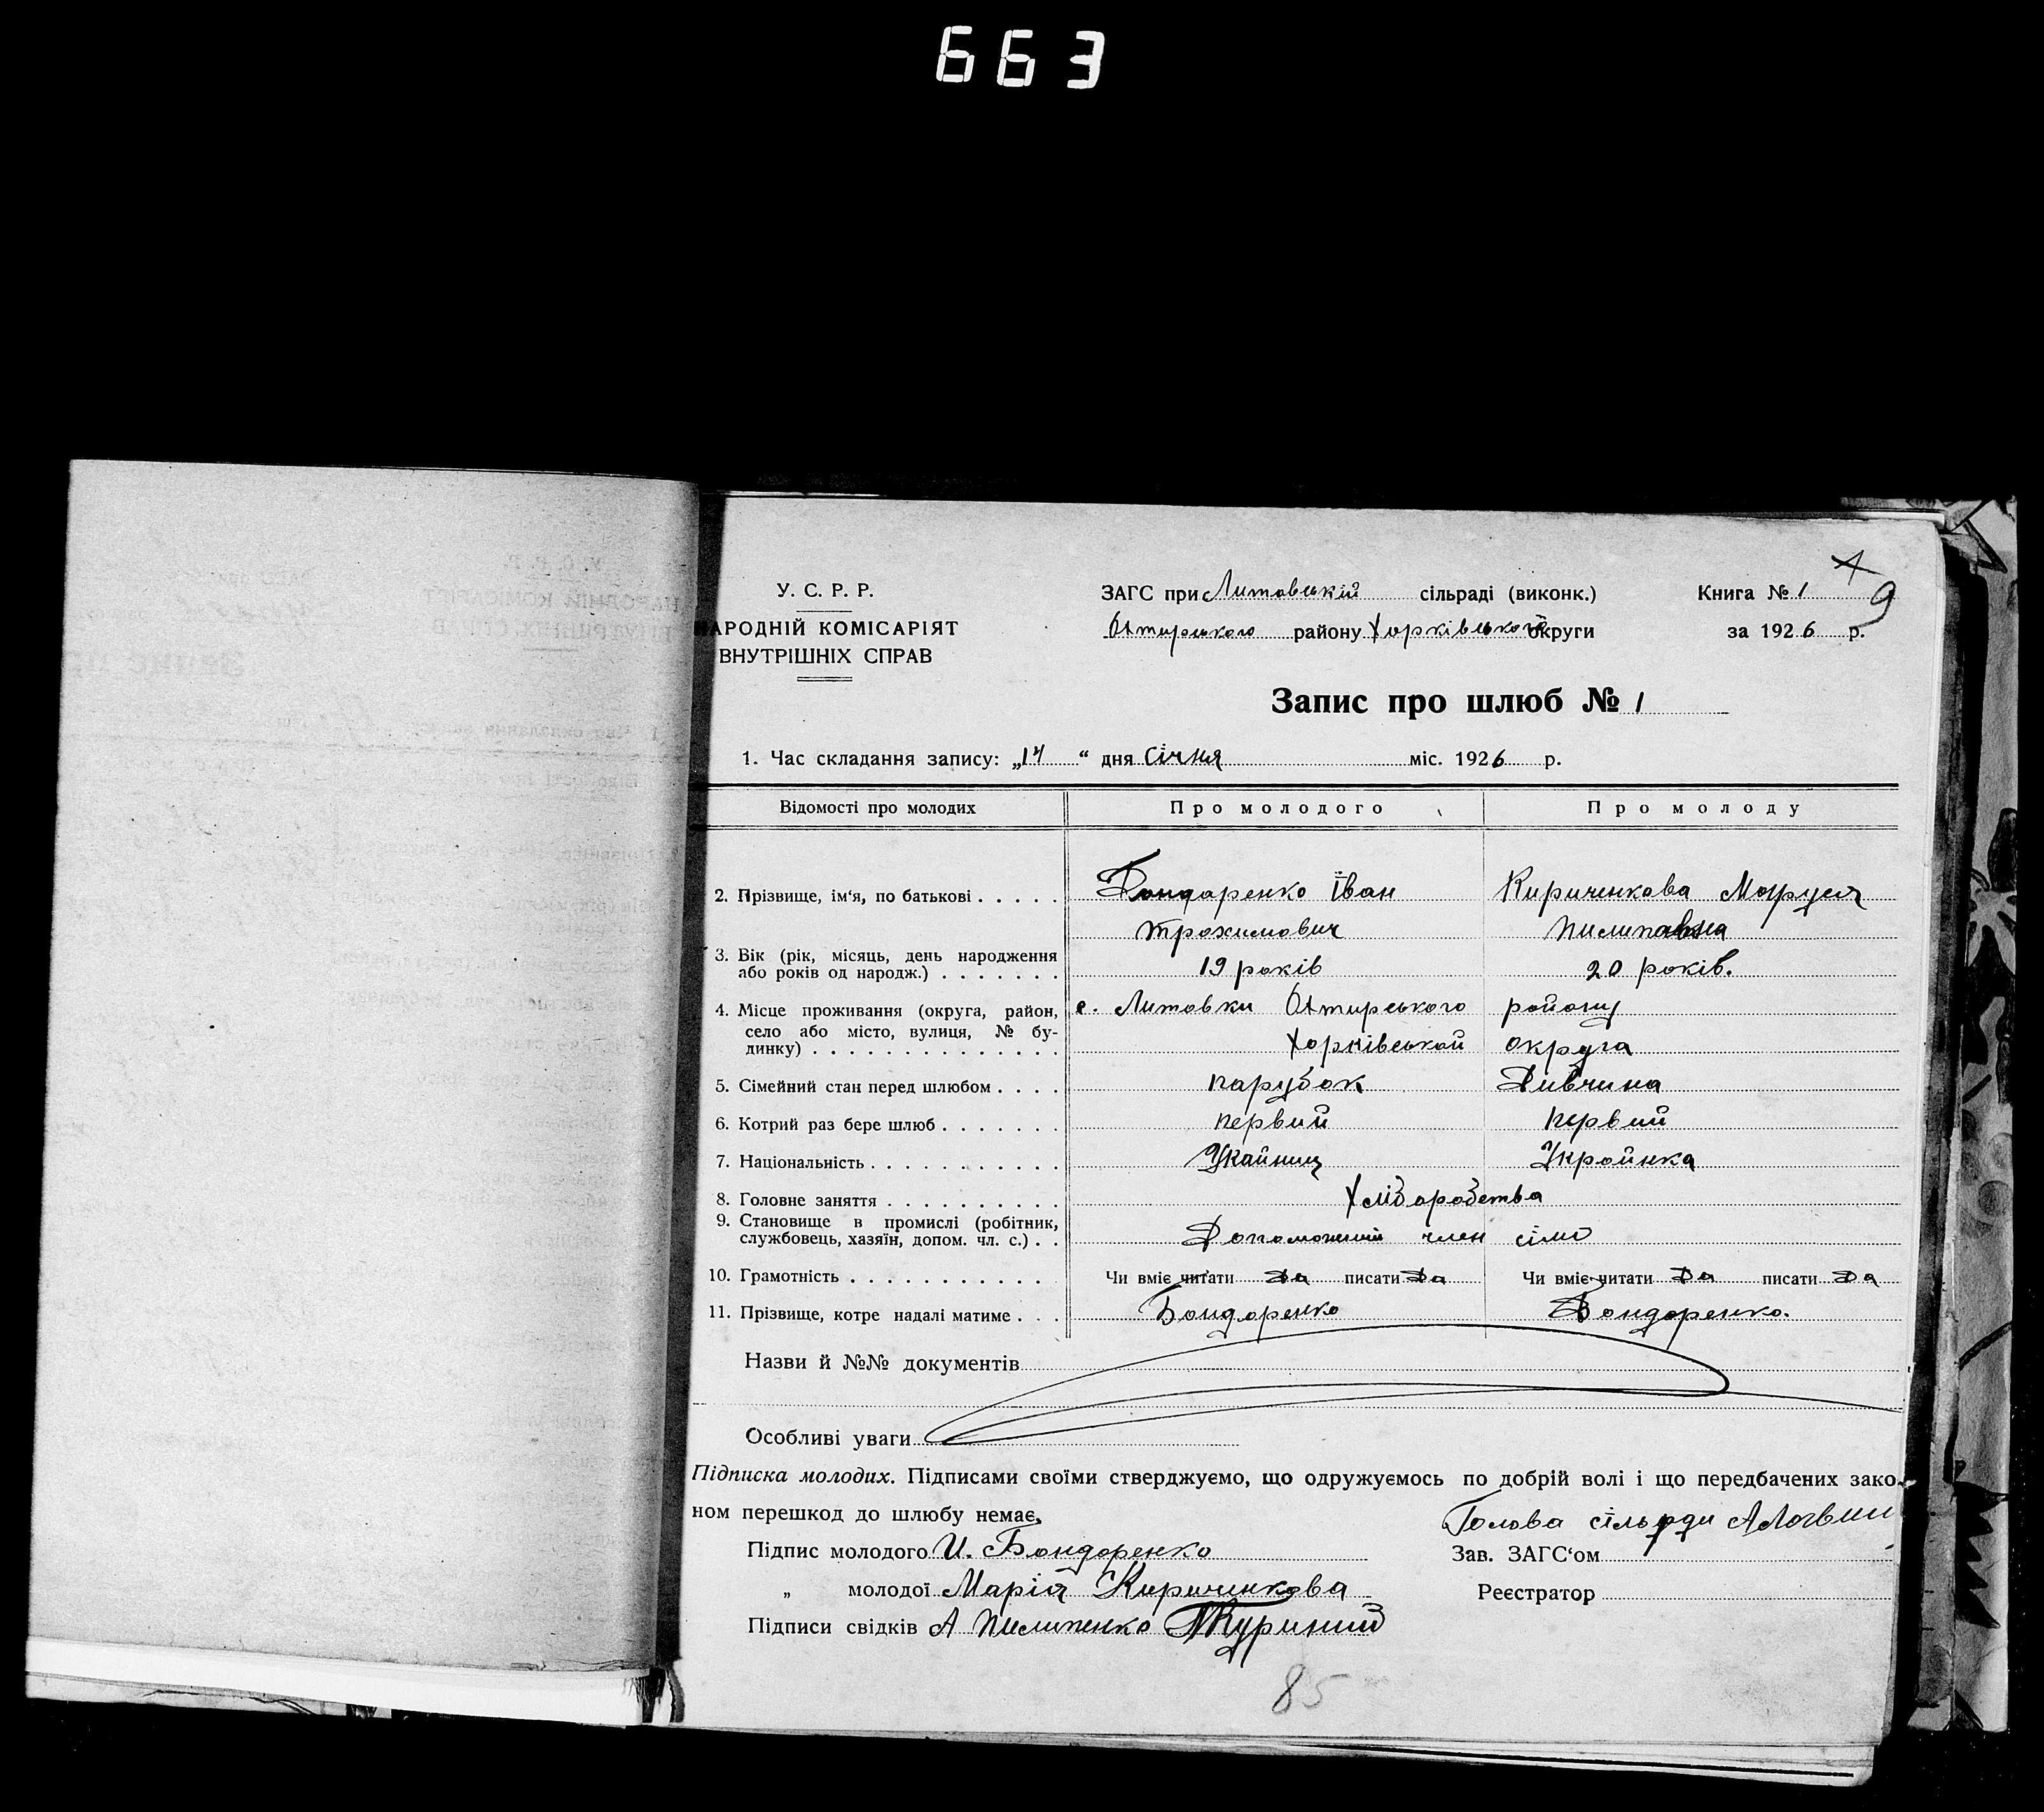 663
У. С. Р. Р.
НАРОДНІЙ КОМІСАРІЯТ
ВНУТРІШНІХ СПРАВ
ЗАГС при Литовській сільраді (виконк.)
Охтирського району Харківського округи
Книга № 1
9
за 1926 р.
Запис про шлюб № 1
1. Час складання запису: „14“ дня січня міс. 1926 р.
Відомості про молодих Про молодого Про молоду
2. Прізвище, ім‘я, по батькові . . . . . Бондаренко Іван Кириченкова Маруся
Трохимович Пилиповна
3. Вік (рік, місяць, день народження
або років од народж.) . . . . . . . 19 років 20 років.
4. Місце проживання (округа, район,
село або місто, вулиця, № бу-
динку) . . . . . . . . . . . . . .
с. Литовки Охтирського району
Харківськой округа
5. Сімейний стан перед шлюбом . . . . парубок Дивчина
6. Котрий раз бере шлюб . . . . . . . первий первий
7. Національність . . . . . . . . . . . Укайниц Украинка
8. Головне заняття . . . . . . . . . . Хліборобства
9. Становище в промислі (робітник,
службовець, хазяїн, допом. чл. с.) . . Допоможний член сімі
10. Грамотність . . . . . . . . . . . Чи вміє читати Да писати Да Чи вміє читати Да писати Да
11. Прізвище, котре надалі матиме . . . Бондаренко Бондаренко.
Назви й №№ документів
Особливі уваги
Підписка молодих. Підписами своїми стверджуємо, що одружуємось по добрій волі і що передбачених зако-
ном перешкод до шлюбу немає.
Голова сільради А Логвин
Підпис молодого И. Бондаренко
Зав. ЗАГС‘ом
„ молодої Марія Кириченкова
Реєстратор
Підписи свідків А Пилипенко Куриний
85